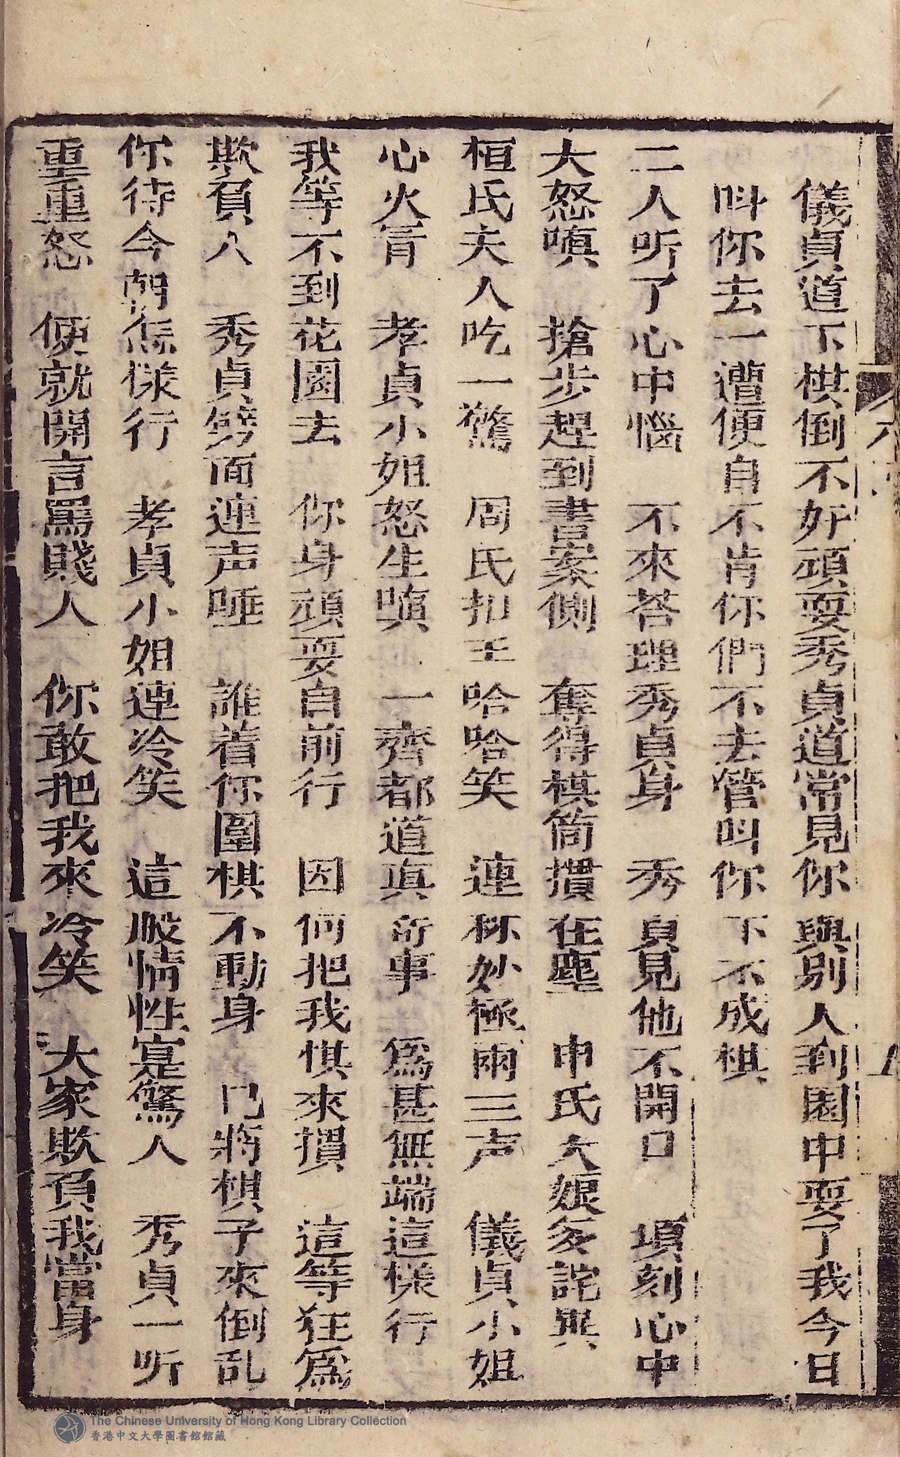 儀貞道下棋倒不好頑耍秀貞道常見你與別人到園中耍了我今日
叫你去一遭便自不肯你們不去管叫你下不成棋
二人听了心中惱　不來荅理秀貞身　秀貞見他不開口　頃刻心中
大怒嗔　搶步趕到書案側　奪得棋筒摜在塵　申氏大娘多詫異
桓氏夫人吃一驚　周氏扣王哈哈笑　連称妙極兩三声　儀貞小姐
心火冐　孝貞小姐怒生嗔　一齊都道真奇事　為甚無端這樣行
我等不到花園去　你身頑耍自前行　因何把我棋來摜　這等狂為
欺負人　秀貞劈面連声唾　誰着你圍棋不動身　已將棋子來倒乱
你待今朝怎樣行　孝貞小姐連冷笑　這般情性寔驚人　秀貞一听
重重怒　便就開言罵賤人　你敢把我來冷笑　大家欺負我當身
The Chinese University of Hong Kong Library Collection
香港中文大學圖書館館藏